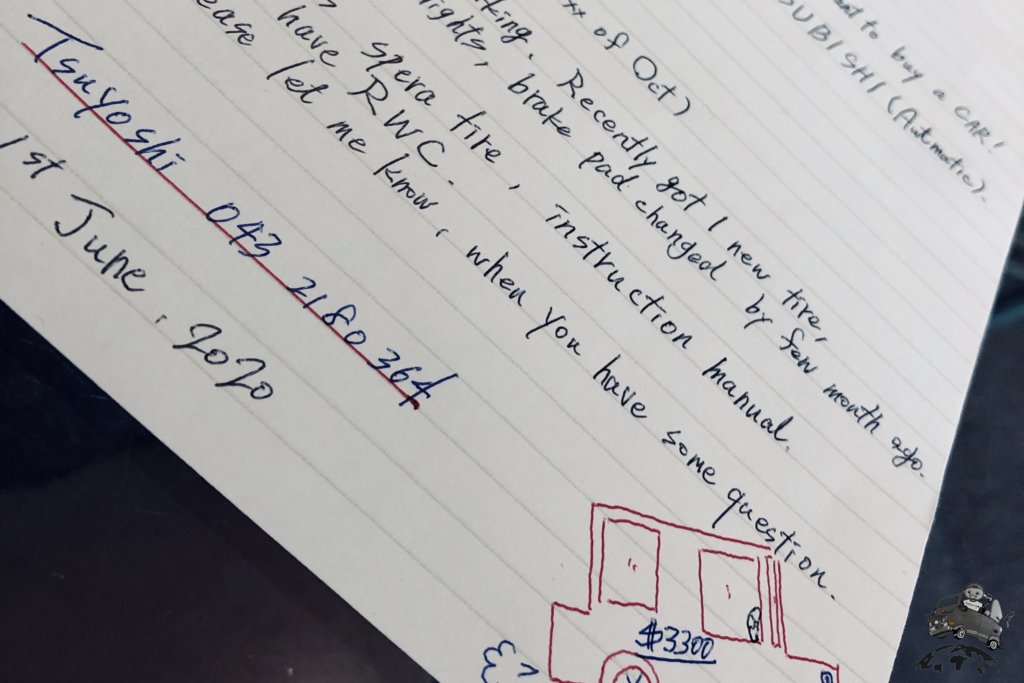 to buy a CAR!
(Automatic).
of Oct)
Recently got 1 new tire,
brake pad changed by few month ago.
spera tire, instruction manual.
have RWC.
let me know, when you have some question.
Tsuyoshi 043 2180 364
1st June, 2020
$3300